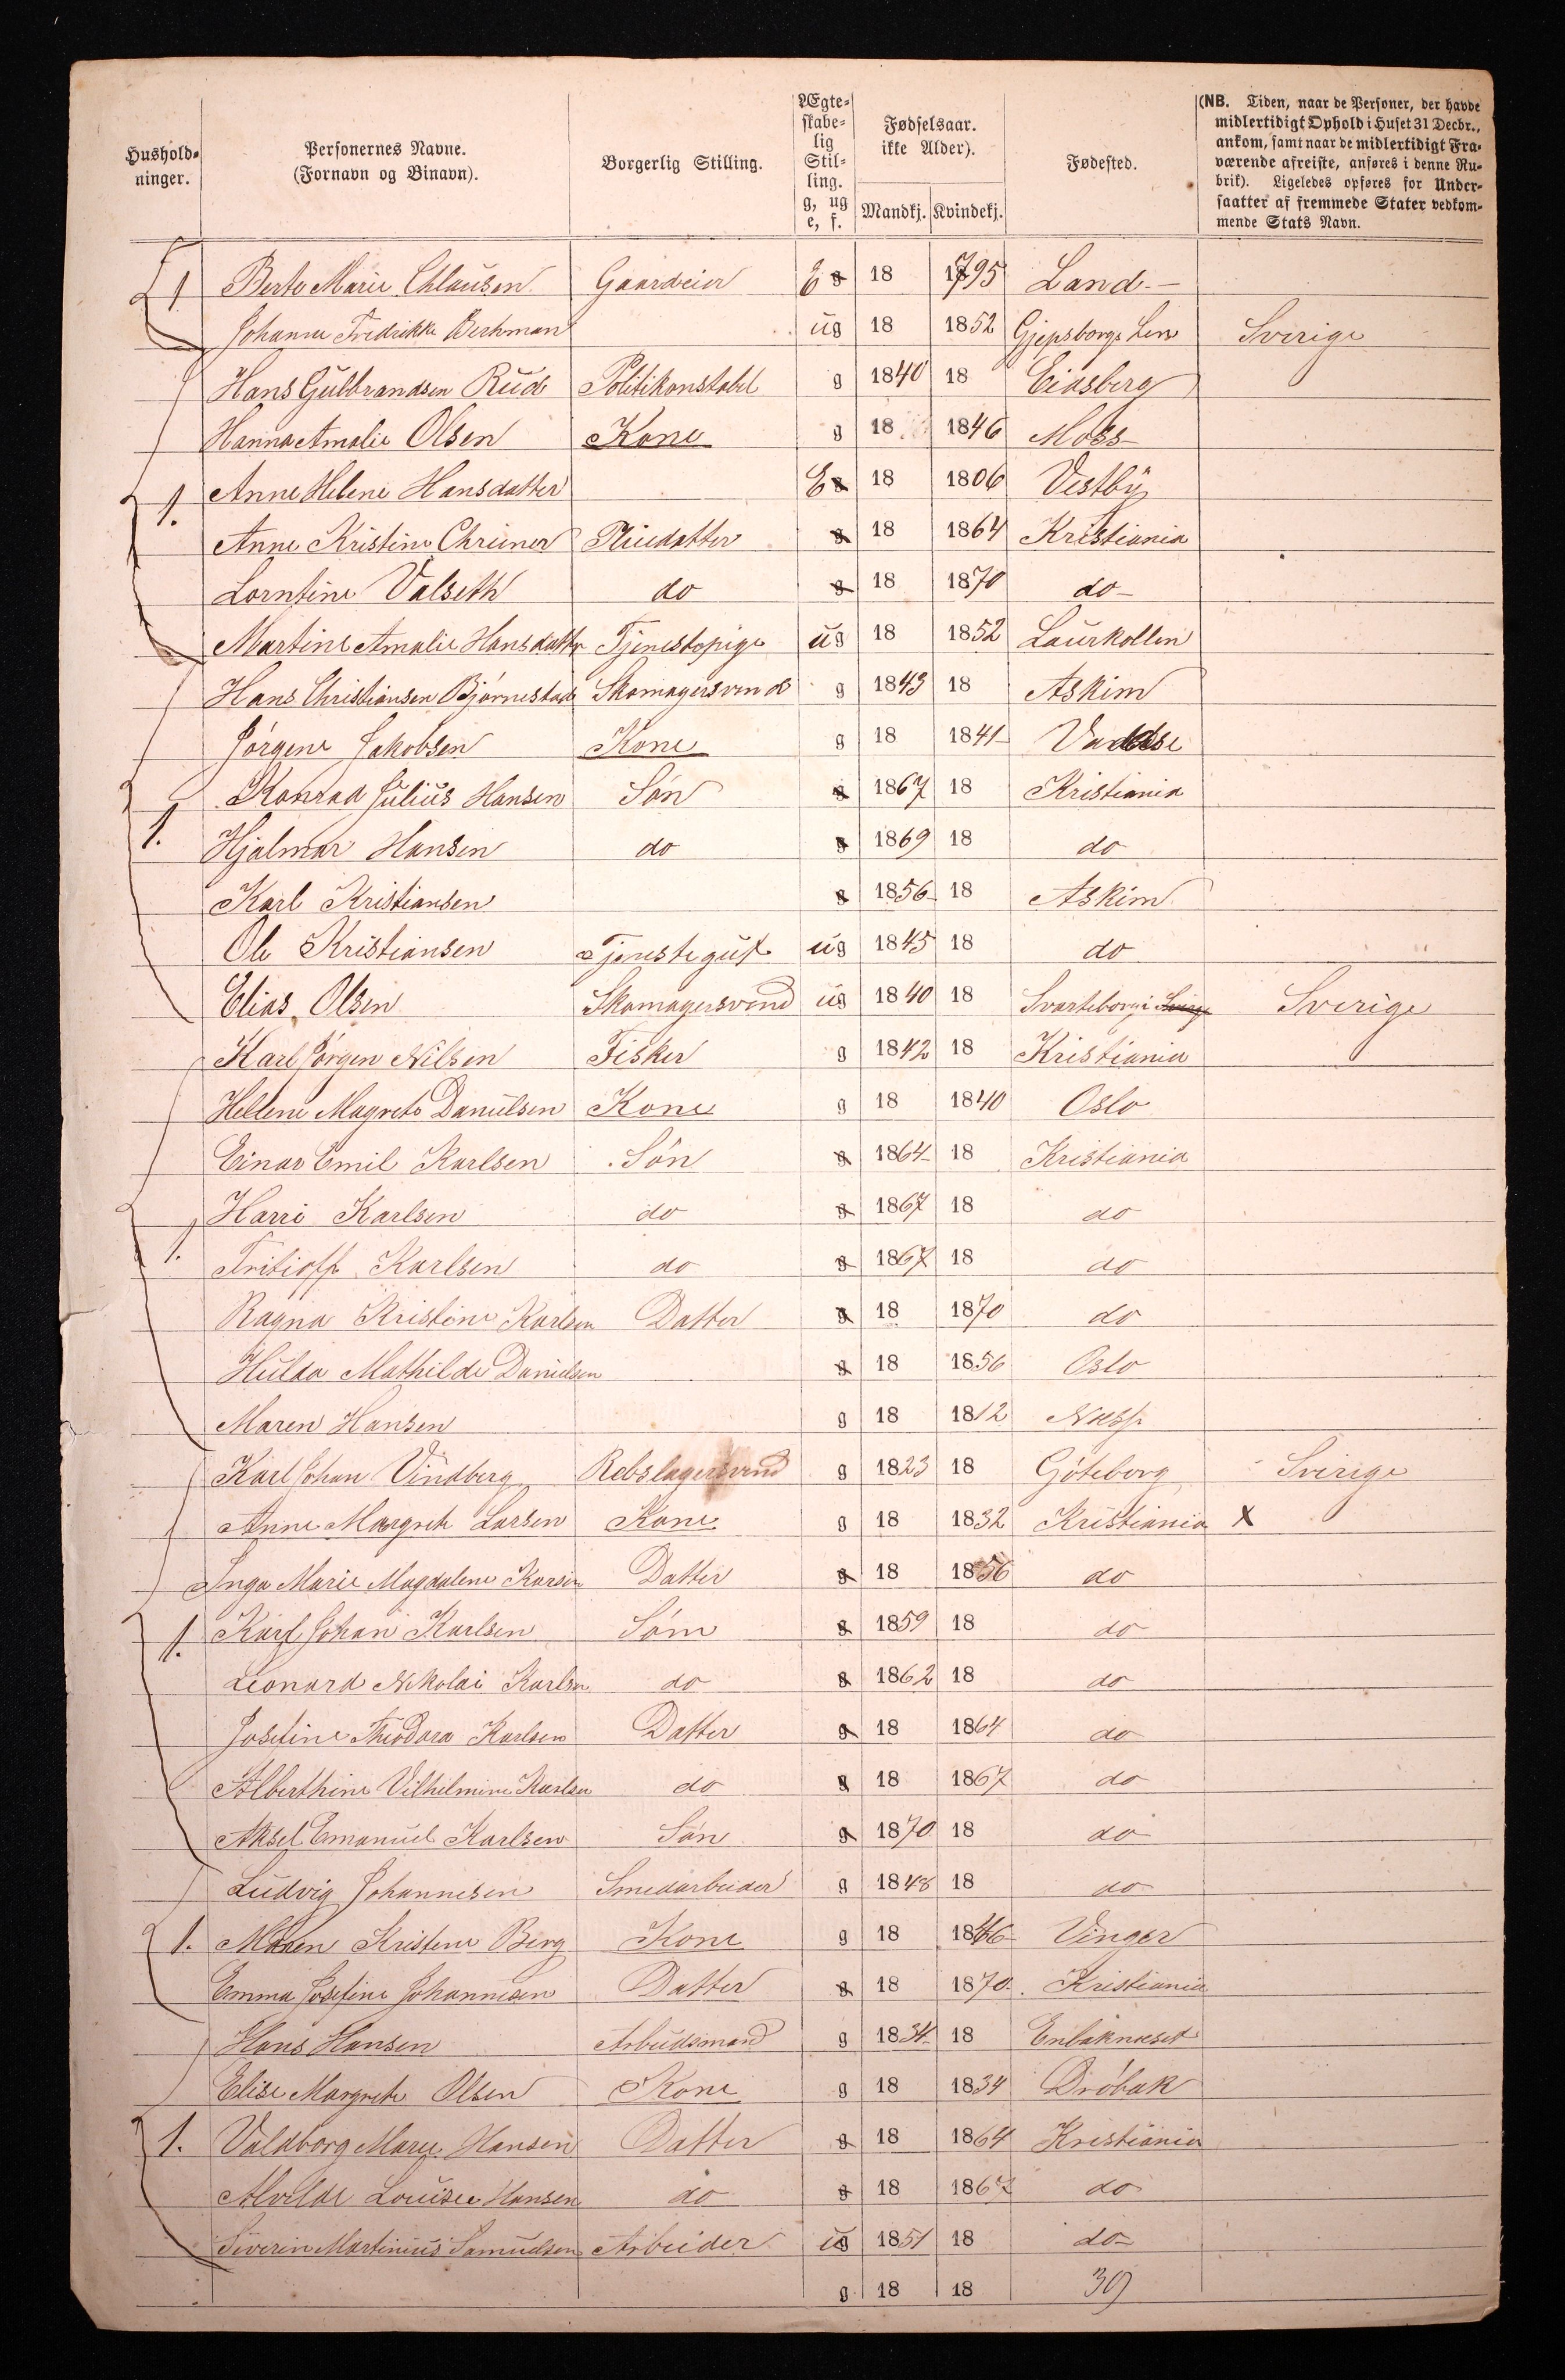 Hushold-
ninger.
Personernes Navne.
(Fornavn og Binavn).
Borgerlig Stilling.
Ægte-
skabe-
lig
Stil-
ling.
g, ug
e, f.
Fødselsaar.
ikke Alder).
Mandkj. Kvindekj.
Fødested.
(NB. Tiden, naar de Personer, der havde
midlertidigt Ophold i Huset 31 Decbr.,
ankom, samt naar de midlertidigt Fra-
værende afreiste, anføres i denne Ru-
brik). Ligeledes opføres for Under-
saatter af fremmede Stater vedkom-
mende Stats Navn.
1 Berte Marie Chlausen Gaardeier E g 18 1795 Land
Johanne Fredrikke ug 18 1852 Lens Sverige
Hans Gulbrandsen Rud Politikonstabel g 1840 18 Eidsberg
Hanna Amalie Olsen Kone g 18 1846 Moss
1. Anne Helene Hansdatter E g 18 1806 Vestby
Anne Kristine g 18 1864 Kristiania
Lorntine Valseth do g 18 1870 do
Martine Amalie Hansdatter Tjenestepige ug 18 1852 Laurkollen
Hans Christiansen Bjørnestad Skomagersvend g 1843 18 Askim
Jørgene Jakobsen Kone g 18 1841
1. Konrad Julius Hansen Søn g 1867 18 Kristiania
Hjalmar Hansen do g 1869 18 do
Karl Kristiansen g 1856 18 Askim
Ole Kristiansen Tjenestegut ug 1845 18 do
Elias Olsen Skomagersvend ug 1840 18 Svarteborg i Sverige Sverige
Karl Jørgen Nilsen Fisker g 1842 18 Kristiania
Hellene Magrete Danielsen Kone g 18 1840 Oslo
Einar Emil Karlsen Søn g 1864 18 Kristiania
1. Harri Karlsen do g 1867 18 do
Fritioff Karlsen do g 1867 18 do
Ragna Kristine Karlsen Datter g 18 1870 do
Hulda Mathilde Danielsen g 18 1856 Oslo
Maren Hansen g 18 1812
Karl Johan Vindberg Rebslagersvend g 1823 18 Göteborg Sverige
Anne Margrete Larsen Kone g 18 1832 Kristiania X
Inga Marie Magdalene g 18 1856 do
Datter
1. Karl Johan Karlsen Søn g 1859 18 do
Leonard Nikolai Karlsen do g 1862 18 do
Josefine Theodora Karlsen Datter g 18 1864 do
Alberthine Vilhelmine Karlsen do g 18 1867 do
Aksel Emanuel Karlsen Søn g 1870 18 do
Ludvig Johannesen Smedarbeider g 1848 18 do
1. Maren Kristene Berg Kone g 18 1846 Vinger
Emma Josefine Johannesen Datter g 18 1870 Kristiania
Hans Hansen Arbeidsmand g 1834 18
Elise Margrete Olsen Kone g 18 1834 Dröbak
1. Valdborg Marie Hansen Datter g 18 1864 Kristiania
Alvilde Louise Hansen do g 18 1867 do
Siverin Martinius Samuelsen Arbeider ug 1851 18 do
g 18 18 39